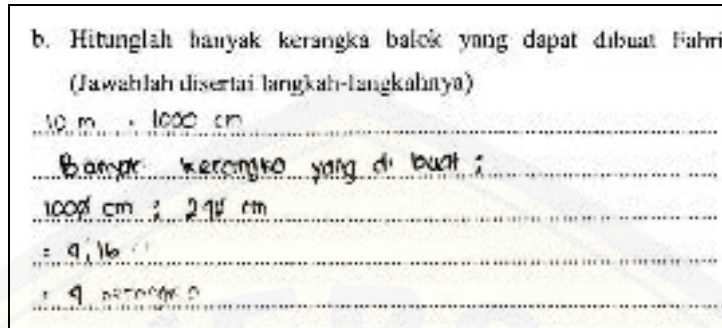 b. Hitunglah banyak kerangka balok yang dapat dibuat Fahri
(Jawablah disertai langkah-langkahnya)
10 m = 1000 cm
Banyak kerangka yang di buat :
1000 cm : 240 cm
= 4,16
= 4 kerangka